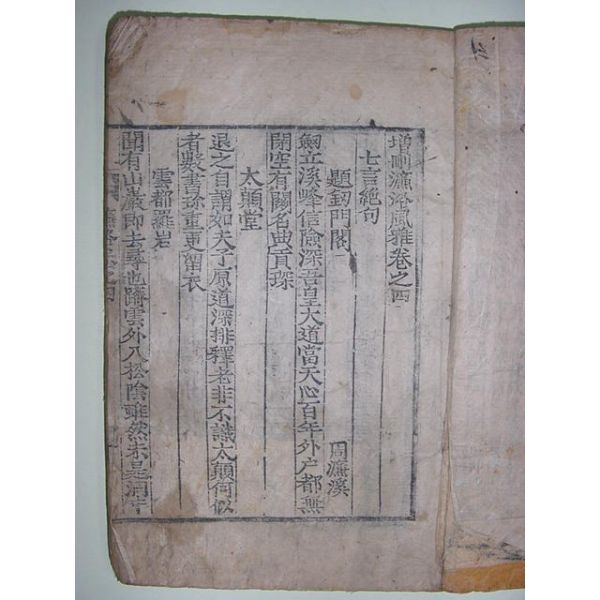 增刪濂洛風雅卷之四
七言絶句
題劒門閣 周濂溪
劒立溪峰信險深吾皇大道當天心百年外户都無
閉空有關名典貢琛
太顚堂
退之自謂如夫子原道深排釋老非不識太顚何似
者數書珎重更留衣
雲都羅岩
聞有山巖即去尋也躋雲外入松陰雖然未是洞中